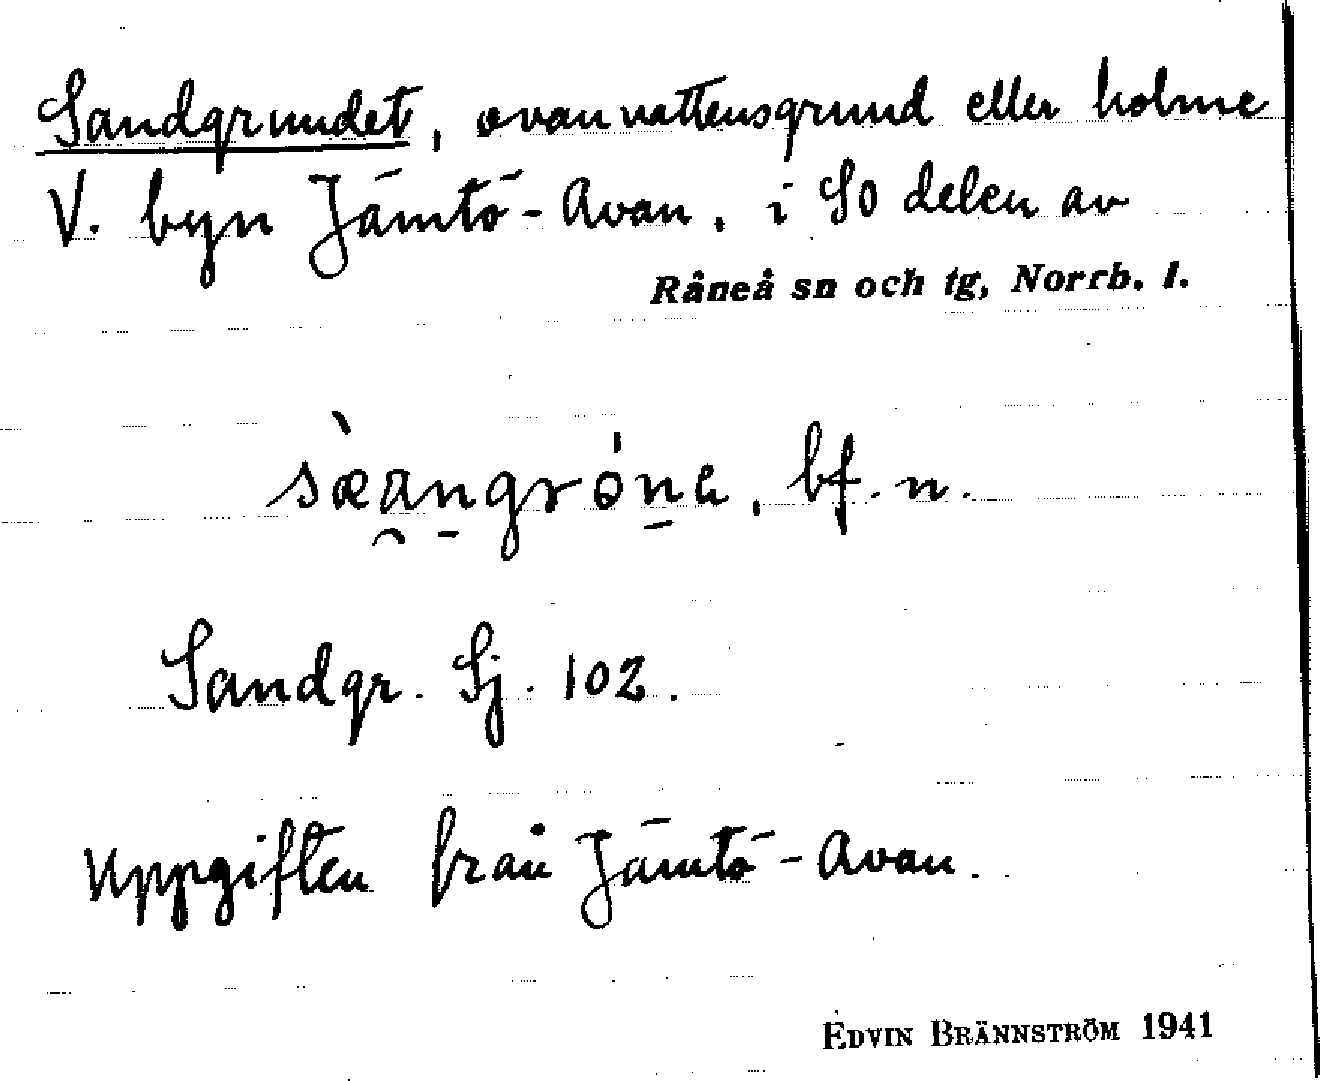 Sandgrundet, ovanvattensgrund eller holme
V. byn Jämtö-Avan, i SO delen av
Råneå sn och tg, Norrb. l.
sæ̀a̯n̠grón̠a, bf. n.
Sandgr. Sj. 102.
Uppgiften från Jämtö-Avan.
EDVIN BRÄNNSTRÖM 1941